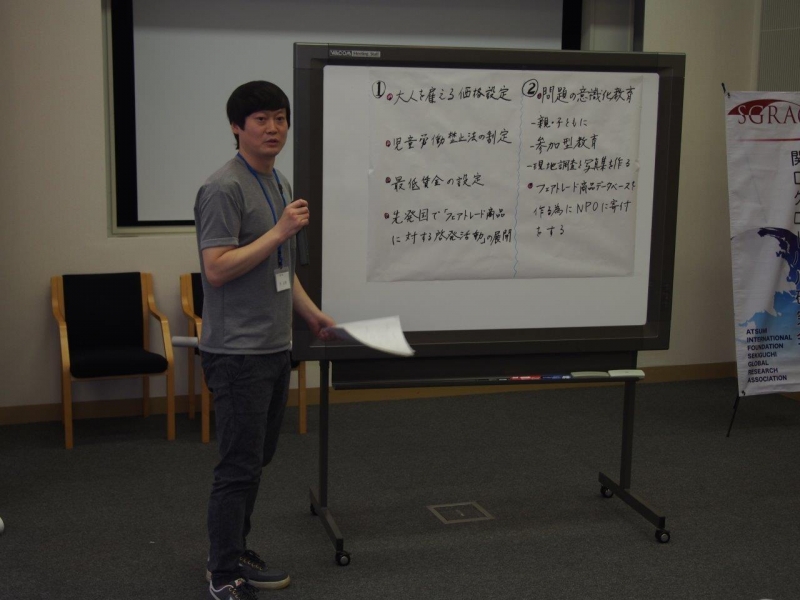 ①
大人を雇える価格設定
児童労働禁止法の制定
最低賃金の設定
先発国で「フェアトレード商品
に対する啓発活動」の展開
②
問題の意識化教育
-親・子ともに
-参加型教育
-現地調査し写真集を作る
フェアトレード商品データベースを
作る為にNPOに寄付
をする
SGRA
関口グローバル
ATSUMI
INTERNATIONAL
FOUNDATION
SEKIGUCHI
GLOBAL
RESEARCH
ASSOCIATION